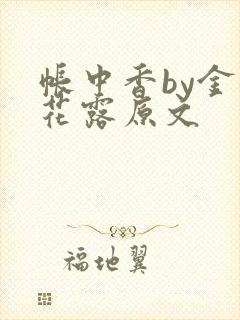 帐中香by金
花露原文
福地翼